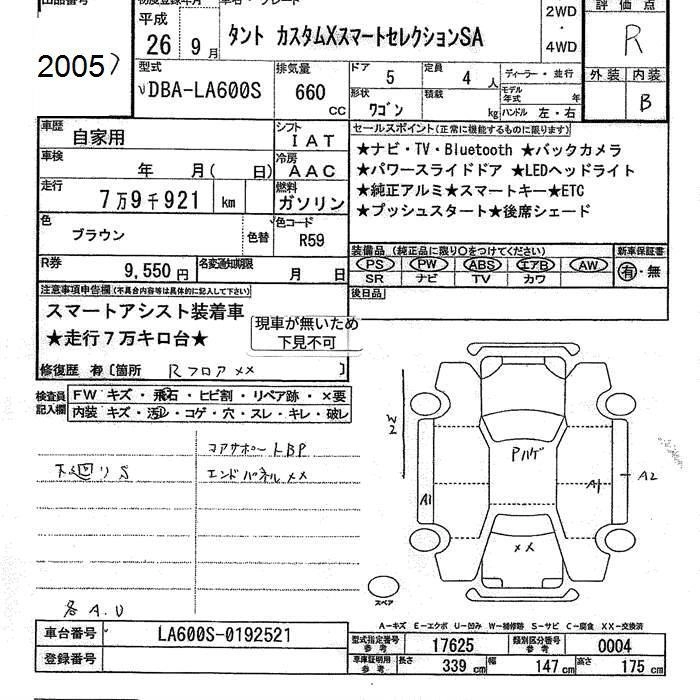 平成 26 9月
タント カスタムXスマートセレクションSA
2WD・4WD
評価点
R
2005
型式
DBA-LA600S
排気量
660 CC
ドア 5
定員 4人
ディーラー・並行
形状 ワゴン
積載 kg
モデル年式 年
ハンドル 左・右
外装 内装
B
車歴 自家用
シフト IAT
車検 年 月( 日)
冷房 AAC
走行 7万9千921 km
燃料 ガソリン
色 ブラウン
色替
色コード R59
R券 9,550円
名変通知期限 月 日
セールスポイント(正常に機能するものに限ります)
★ナビ・TV・Bluetooth ★バックカメラ
★パワースライドドア ★LEDヘッドライト
★純正アルミ★スマートキー★ETC
★プッシュスタート★後席シェード
装備品 (純正品に限り○をつけてください)
新車保証書
PS PW ABS エアB AW
有・無
SR ナビ TV カワ
後日品
注意事項申告欄(不具合内容等は具体的に記入して下さい)
スマートアシスト装着車
★走行7万キロ台★
現車が無いため
下見不可
修復歴 有 [箇所 Rフロア××]
検査員記入欄
FW キズ・飛石・ヒビ割・リペア跡・×要
内装 キズ・汚レ・コゲ・穴・スレ・キレ・破レ
コアサポートBP
下廻りS
エンドパネル××
各A.U
W2
Pハゲ
A1
A1
A2
××
スペア
A-キズ E-エクボ U-凹み W-補修跡 S-サビ C-腐食 XX-交換済
車台番号 LA600S-0192521
登録番号
型式指定番号 参考 17625
類別区分番号 参考 0004
車庫証明用 参考 長さ 339cm 幅 147cm 高さ 175cm